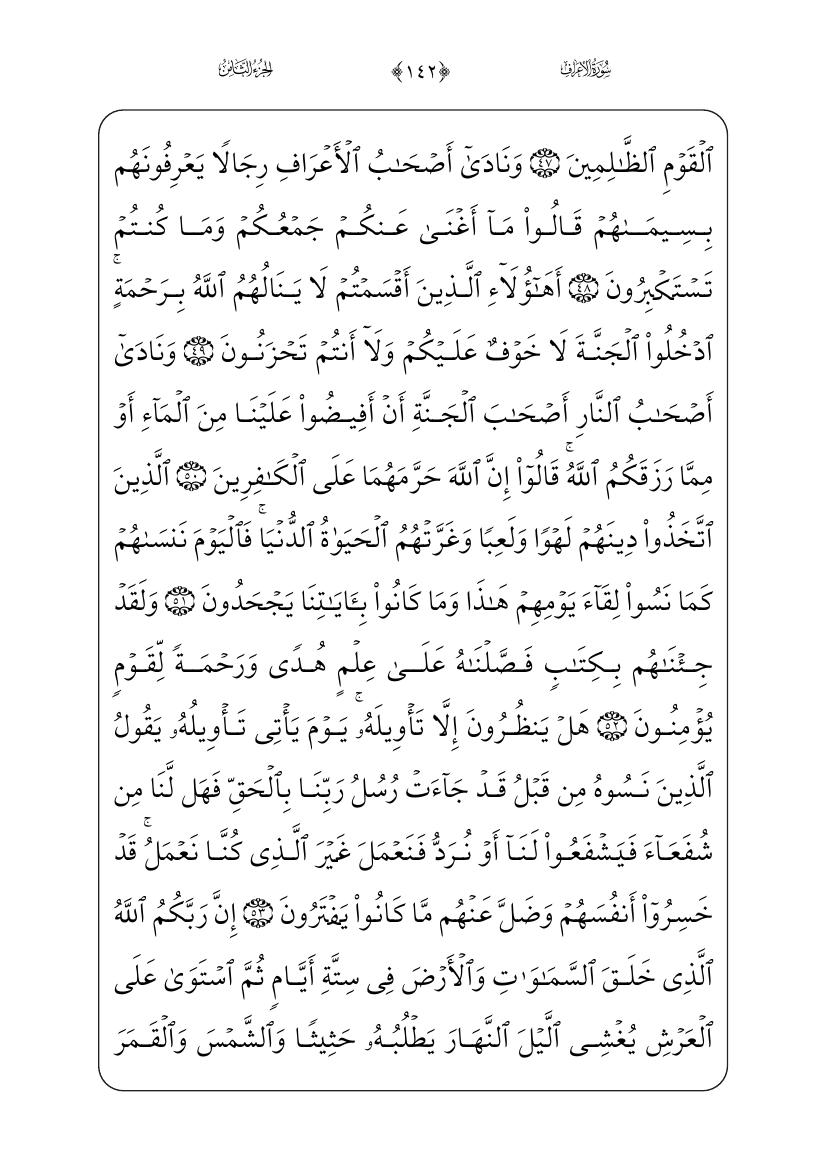 سُورَةُ الأَعۡرَافِ ﴿١٤٢﴾ الجُزۡءُ الثَّامِنُ
ٱلۡقَوۡمِ ٱلظَّـٰلِمِينَ ٤٧ وَنَادَىٰٓ أَصۡحَـٰبُ ٱلۡأَعۡرَافِ رِجَالࣰا يَعۡرِفُونَهُم
بِسِيمَـٰهُمۡ قَالُوا۟ مَاۤ أَغۡنَىٰ عَنكُمۡ جَمۡعُكُمۡ وَمَا كُنتُمۡ
تَسۡتَكۡبِرُونَ ٤٨ أَهَـٰۤؤُلَاۤءِ ٱلَّذِينَ أَقۡسَمۡتُمۡ لَا يَنَالُهُمُ ٱللَّهُ بِرَحۡمَةٍۚ
ٱدۡخُلُوا۟ ٱلۡجَنَّةَ لَا خَوۡفٌ عَلَيۡكُمۡ وَلَاۤ أَنتُمۡ تَحۡزَنُونَ ٤٩ وَنَادَىٰٓ
أَصۡحَـٰبُ ٱلنَّارِ أَصۡحَـٰبَ ٱلۡجَنَّةِ أَنۡ أَفِيضُوا۟ عَلَيۡنَا مِنَ ٱلۡمَاۤءِ أَوۡ
مِمَّا رَزَقَكُمُ ٱللَّهُۚ قَالُوۤا۟ إِنَّ ٱللَّهَ حَرَّمَهُمَا عَلَى ٱلۡكَـٰفِرِينَ ٥٠ ٱلَّذِينَ
ٱتَّخَذُوا۟ دِينَهُمۡ لَهۡوࣰا وَلَعِبࣰا وَغَرَّتۡهُمُ ٱلۡحَيَوٰةُ ٱلدُّنۡيَاۚ فَٱلۡيَوۡمَ نَنسَىٰهُمۡ
كَمَا نَسُوا۟ لِقَاۤءَ يَوۡمِهِمۡ هَـٰذَا وَمَا كَانُوا۟ بِـَٔايَـٰتِنَا يَجۡحَدُونَ ٥١ وَلَقَدۡ
جِئۡنَـٰهُم بِكِتَـٰبࣲ فَصَّلۡنَـٰهُ عَلَىٰ عِلۡمٍ هُدࣰى وَرَحۡمَةࣰ لِّقَوۡمࣲ
يُؤۡمِنُونَ ٥٢ هَلۡ يَنظُرُونَ إِلَّا تَأۡوِيلَهُۥۚ يَوۡمَ يَأۡتِی تَأۡوِيلُهُۥ يَقُولُ
ٱلَّذِينَ نَسُوهُ مِن قَبۡلُ قَدۡ جَاۤءَتۡ رُسُلُ رَبِّنَا بِٱلۡحَقِّ فَهَل لَّنَا مِن
شُفَعَاۤءَ فَيَشۡفَعُوا۟ لَنَاۤ أَوۡ نُرَدُّ فَنَعۡمَلَ غَيۡرَ ٱلَّذِی كُنَّا نَعۡمَلُۚ قَدۡ
خَسِرُوۤا۟ أَنفُسَهُمۡ وَضَلَّ عَنۡهُم مَّا كَانُوا۟ يَفۡتَرُونَ ٥٣ إِنَّ رَبَّكُمُ ٱللَّهُ
ٱلَّذِی خَلَقَ ٱلسَّمَـٰوَٰتِ وَٱلۡأَرۡضَ فِی سِتَّةِ أَيَّامࣲ ثُمَّ ٱسۡتَوَىٰ عَلَى
ٱلۡعَرۡشِ يُغۡشِی ٱلَّيۡلَ ٱلنَّهَارَ يَطۡلُبُهُۥ حَثِيثࣰا وَٱلشَّمۡسَ وَٱلۡقَمَرَ